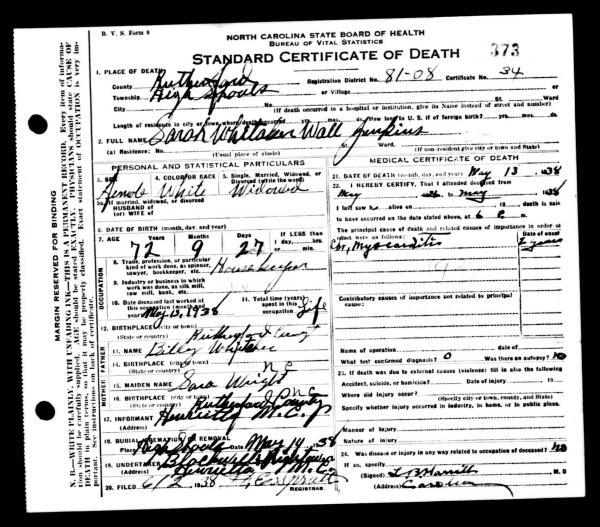 B. V. S. Form 8
NORTH CAROLINA STATE BOARD OF HEALTH
BUREAU OF VITAL STATISTICS
STANDARD CERTIFICATE OF DEATH 373
1. PLACE OF DEATH
County Rutherford Registration District No. 81-08 Certificate No. 34
Township High Shoals or Village
City No. St. Ward
(If death occurred in a hospital or institution, give its Name instead of street and number)
Length of residence in city or town where death occurred yrs. mos. ds. How long in U. S. if of foreign birth? yrs. mos. ds.
2. FULL NAME Sarah Whitaker Wall Jenkins
(a) Residence: No. St. Ward.
(Usual place of abode) (If non-resident give city or town and State)
PERSONAL AND STATISTICAL PARTICULARS
3. SEX 4. COLOR OR RACE 5. Single, Married, Widowed, or Divorced (write the word)
Female White Widowed
5a. If married, widowed, or divorced
HUSBAND of
(or) WIFE of
6. DATE OF BIRTH (month, day, and year)
7. AGE Years Months Days If LESS than
72 9 27 1 day, hrs.
or min.
OCCUPATION
8. Trade, profession, or particular
kind of work done, as spinner,
sawyer, bookkeeper, etc. Housekeeper
9. Industry or business in which
work was done, as silk mill,
saw mill, bank, etc.
10. Date deceased last worked at
this occupation (month and
year) May 13, 1938
11. Total time (years)
spent in this
occupation Life
12. BIRTHPLACE (city or town)
(State or country) Rutherford County
FATHER
13. NAME Billy Whitaker
14. BIRTHPLACE (city or town)
(State or country) N C
MOTHER
15. MAIDEN NAME Sara Wright
16. BIRTHPLACE (city or town) N C
(State or country) Rutherford County
17. INFORMANT
(Address) Henrietta N. C.
18. BURIAL, CREMATION OR REMOVAL
Place High Shoals Date May 14 1938
19. UNDERTAKER
(Address) Henrietta N. C.
20. FILED 6/2 1938
REGISTRAR.
MEDICAL CERTIFICATE OF DEATH
21. DATE OF DEATH (month, day, and year) May 13, 1938
22. I HEREBY CERTIFY, That I attended deceased from
May 1938 to May 1938
I last saw h alive on 19 death is said
to have occurred on the date stated above, at 6 P m.
The principal cause of death and related causes of importance in order of
onset were as follows: Date of onset
Chr. Myocarditis 2 years
Contributory causes of importance not related to principal
cause:
Name of operation date of
What test confirmed diagnosis? 0 Was there an autopsy? no
23. If death was due to external causes (violence) fill in also the following
Accident, suicide, or homicide? Date of injury 19
Where did injury occur?
(Specify city or town, county, and State)
Specify whether injury occurred in industry, in home, or in public place.
Manner of Injury
Nature of injury
24. Was disease or injury in any way related to occupation of deceased? no
If so, specify
(Signed) M. D.
(Address) Caroleen
MARGIN RESERVED FOR BINDING
N. B.—WRITE PLAINLY, WITH UNFADING INK—THIS IS A PERMANENT RECORD. Every item of informa-
tion should be carefully supplied. AGE should be stated EXACTLY. PHYSICIANS should state CAUSE OF
DEATH in plain terms, so that it may be properly classified. Exact statement of OCCUPATION is very im-
portant. See instructions on back of certificate.